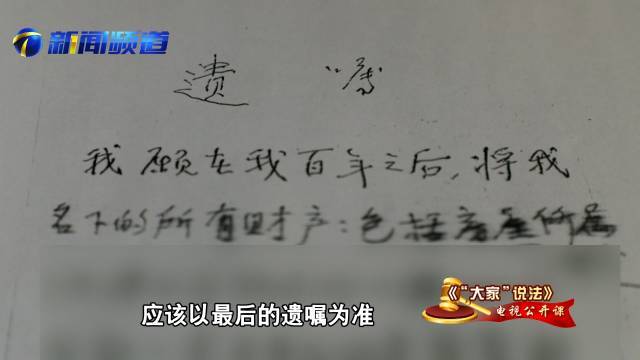 新闻频道
遗 嘱
我愿在我百年之后,将我
名下的所有财产:包括
应该以最后的遗嘱为准
《“大家”说法》
电视公开课